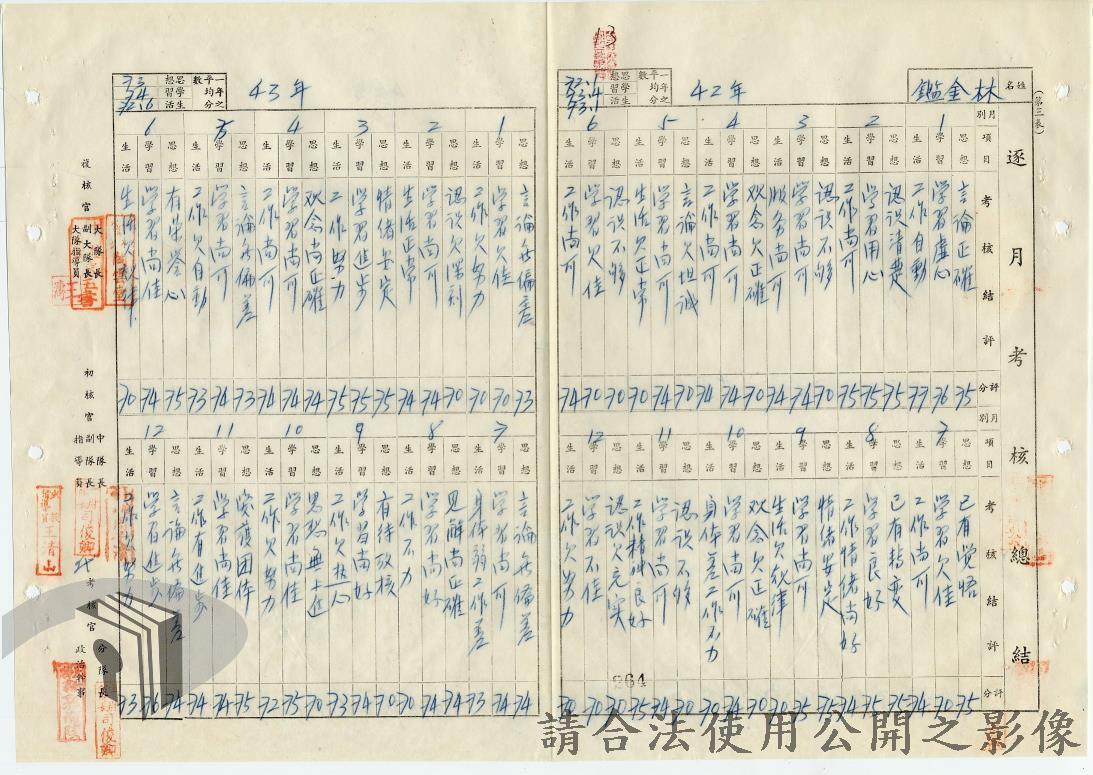 (第三表)
逐月考核總結
姓名 林金鑑
42年
一年之平均分數
思想
學習 73.4
生活 73.1
月別
項目
考核結評
評分
1
思想 言論正確 75
學習 學習虛心 76
生活 工作自動 77
2
思想 認識清楚 75
學習 學習用心 75
生活 工作尚可 75
3
思想 認識不够 70
學習 學習尚可 74
生活 服務尚可 74
4
思想 观念尚正確
學習 學習尚可 74
生活 工作尚可 74
5
思想 言論欠坦誠 70
學習 學習尚可 74
生活 生活欠正常 70
6
思想 認識不够 70
學習 學習欠佳 70
生活 工作尚可 74
月別
項目
考核結評
評分
7
思想 已有覺悟 75
學習 學習欠佳 70
生活 工作尚可 74
8
思想 已有轉變 75
學習 學習良好 75
生活 工作情绪尚好 74
9
思想 情绪安定 75
學習 學習尚可 74
生活 生活欠規律 70
10
思想 观念欠正確 70
學習 學習尚可 74
生活 身体差工作不力 70
11
思想 認識不够 70
學習 學習尚可 74
生活 工作精神良好 75
12
思想 認識欠充实 70
學習 學習不佳 70
生活 工作欠努力 70
264
43年
一年之平均分數
思想 73
學習 74
生活 72.6
1
思想 言論無偏差 73
學習 學習欠佳 70
生活 工作欠努力 70
2
思想 認識深刻
學習 學習尚可 74
生活 生活正常 74
3
思想 情绪安定 75
學習 學習進步 75
生活 工作努力 75
4
思想 观念尚正確 74
學習 學習尚可 74
生活 工作尚可 74
5
思想 言論無偏差 73
學習 學習尚可 74
生活 工作欠自動 73
6
思想 有荣誉心 75
學習 學習尚佳 74
生活 生活欠規律 70
7
思想 言論無偏差 74
學習 學習尚可 74
生活 身体弱工作差 73
8
思想 見解尚正確 74
學習 學習尚好 74
生活 工作不力 70
9
思想 有待放核 70
學習 學習尚好 74
生活 工作欠热心 73
10
思想 思想無上進 70
學習 學習尚佳 75
生活 工作欠努力 72
11
思想 愛護团体 75
學習 學習尚佳 74
生活 工作有進步 74
12
思想 言論無偏差 74
學習 學習有進步 76
生活 工作欠努力 73
複核官 大隊長 副大隊長 大隊指導員
初核官 中隊長 副隊長 指導員
王青山
考核官 分隊長 政治幹事
請合法使用公開之影像